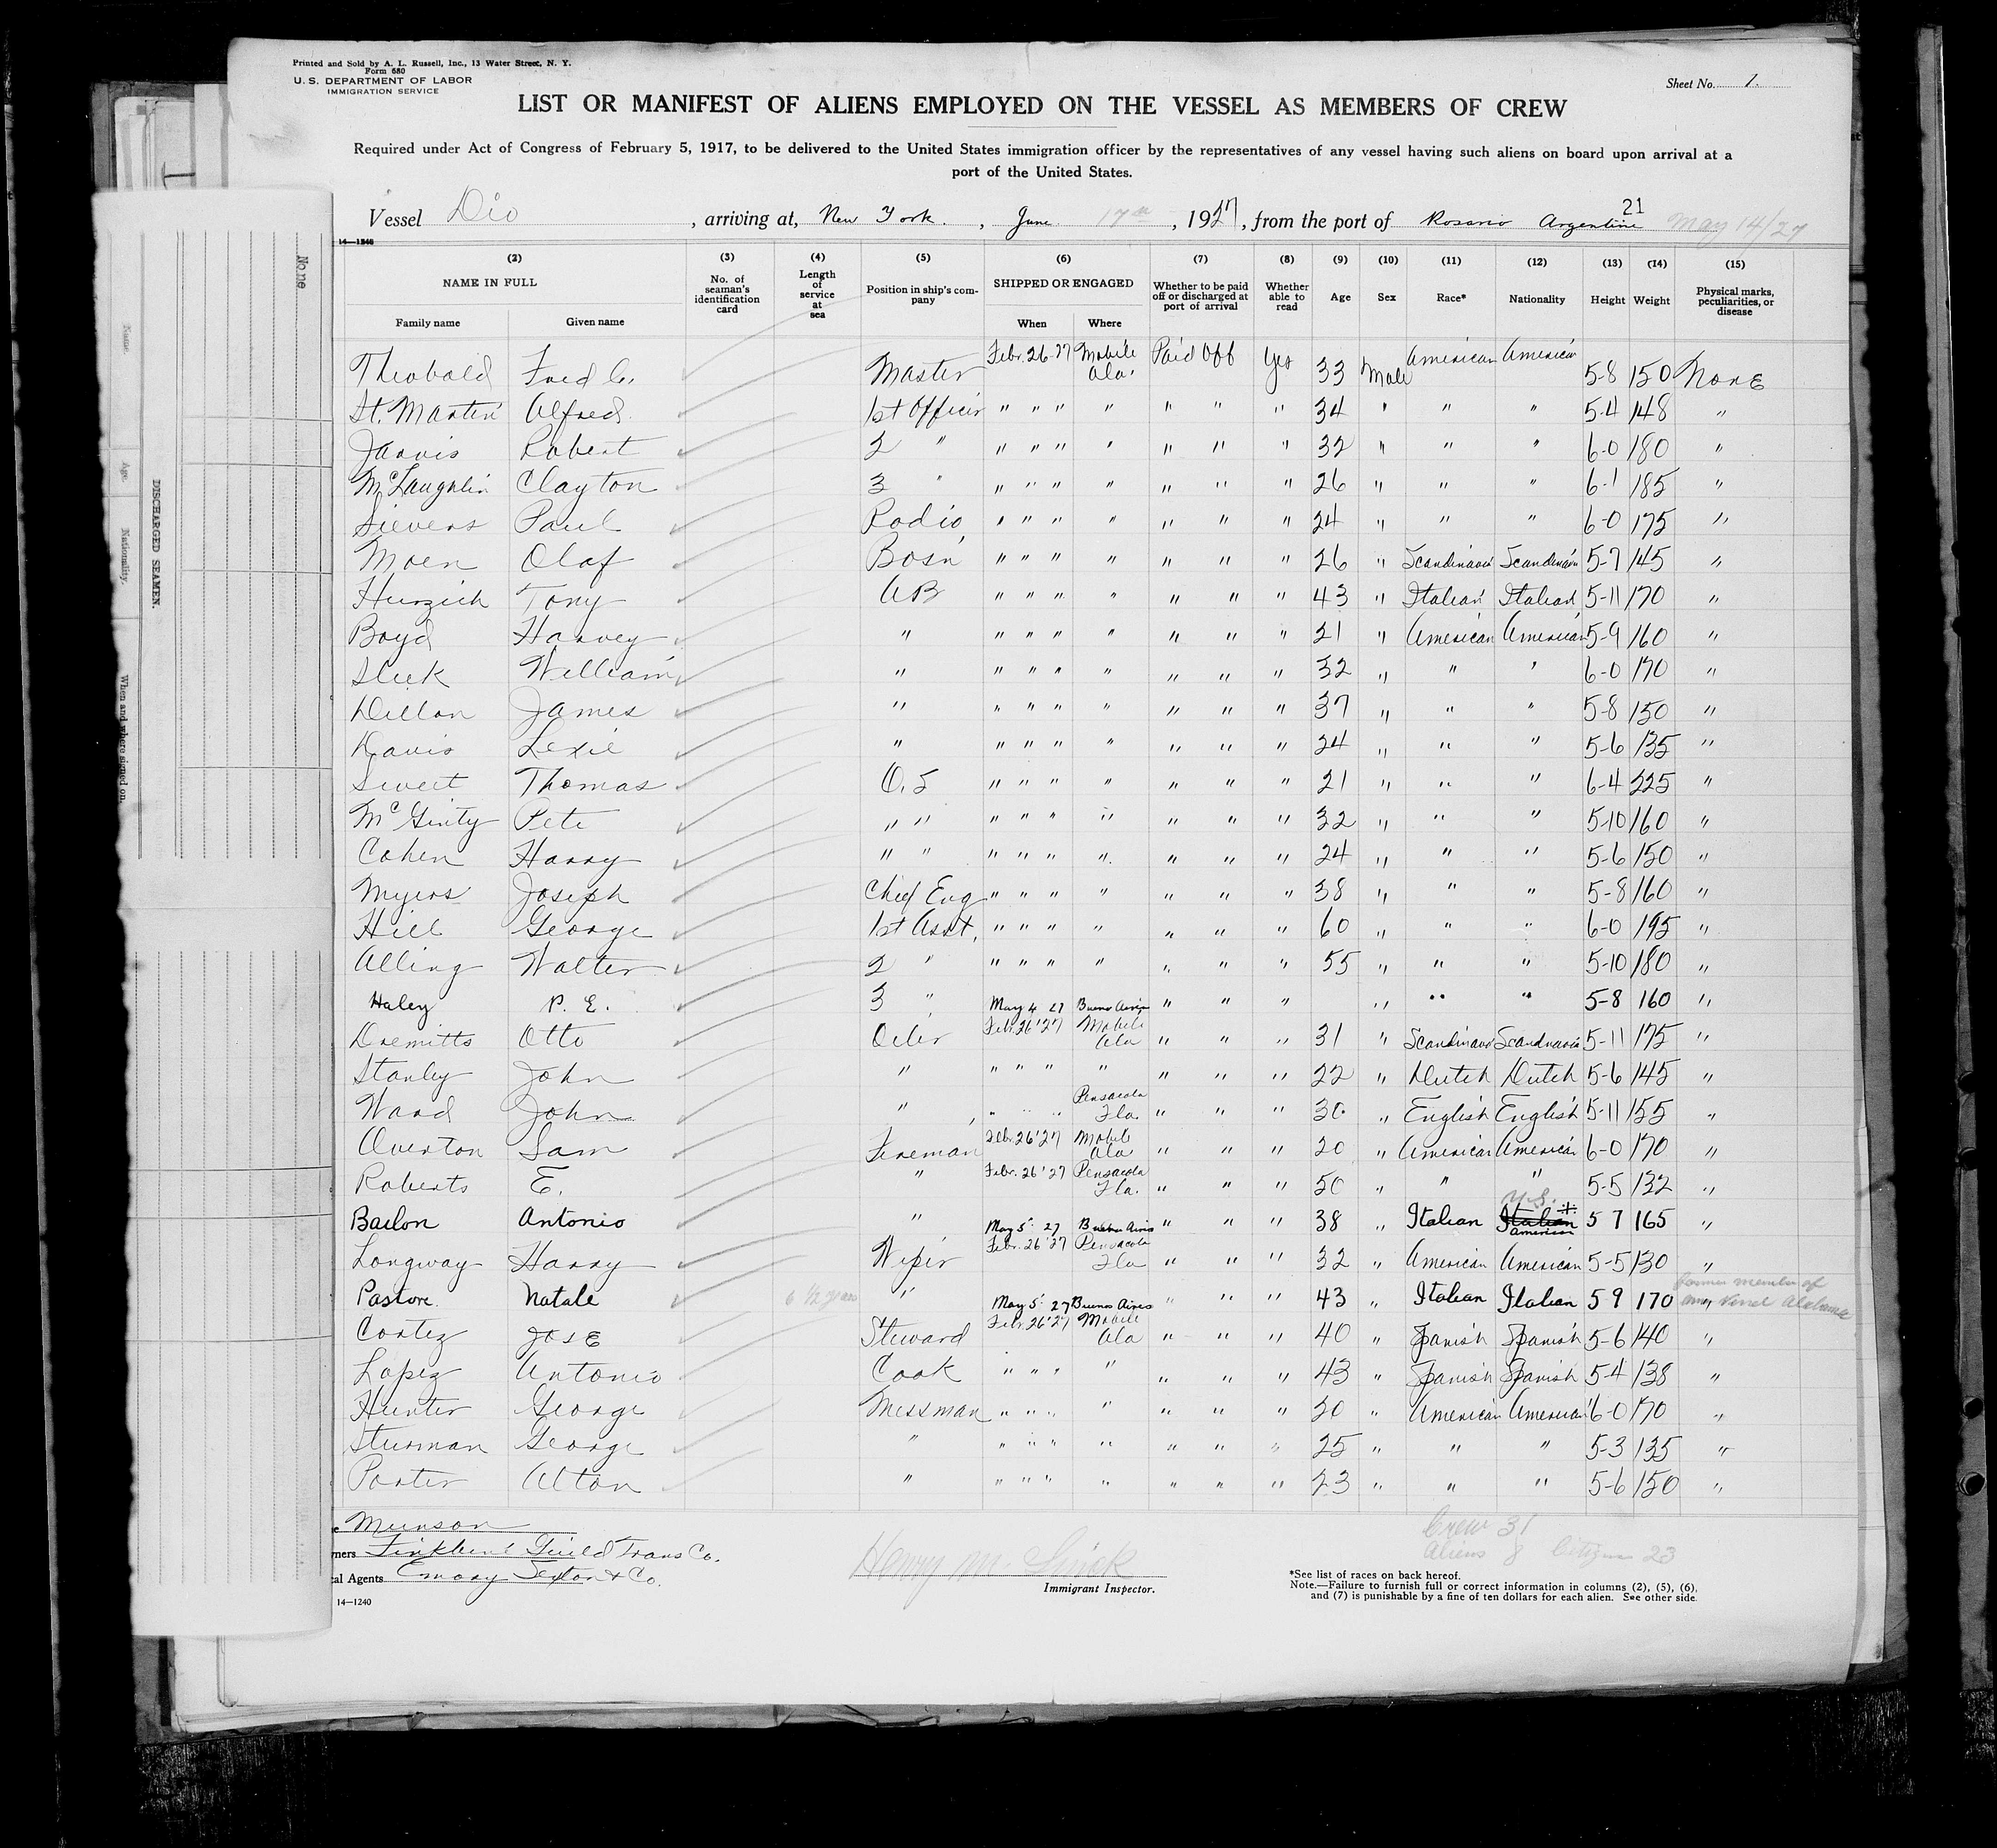 Printed and Sold by A. L. Russell, Inc., 13 Water Street, N. Y.
Form 680
U. S. DEPARTMENT OF LABOR
IMMIGRATION SERVICE
Sheet No. 1.
LIST OR MANIFEST OF ALIENS EMPLOYED ON THE VESSEL AS MEMBERS OF CREW
Required under Act of Congress of February 5, 1917, to be delivered to the United States immigration officer by the representatives of any vessel having such aliens on board upon arrival at a
port of the United States.
Vessel Dio, arriving at, New York., June 17th, 1927, from the port of Rosario Argentine 21 May 14/27
14—1240
(2) NAME IN FULL Family name Given name
(3) No. of seaman's identification card
(4) Length of service at sea
(5) Position in ship's company
(6) SHIPPED OR ENGAGED When Where
(7) Whether to be paid off or discharged at port of arrival
(8) Whether able to read
(9) Age
(10) Sex
(11) Race*
(12) Nationality
(13) Height
(14) Weight
(15) Physical marks, peculiarities, or disease
Theobald Fred C. Master Febr. 26-27 Mobile Ala. Paid Off Yes 33 Male American American 5-8 150 None
St. Martin Alfred 1st Officer " " " " " " " 34 " " " 5-4 148 "
Jarvis Robert 2 " " " " " " " " 32 " " " 6-0 180 "
McLaughlin Clayton 3 " " " " " " " " 26 " " " 6-1 185 "
Sievers Paul Radio " " " " " " " 24 " " " 6-0 175 "
Moen Olaf Bosn " " " " " " " 26 " Scandinavia Scandinavia 5-7 145 "
Hurzich Tony AB " " " " " " " 43 " Italian Italian 5-11 170 "
Boyd Harvey " " " " " " " " 21 " American American 5-9 160 "
Sleek William " " " " " " " " 32 " " " 6-0 170 "
Dillon James " " " " " " " " 37 " " " 5-8 150 "
Davis Lexie " " " " " " " " 24 " " " 5-6 135 "
Sweet Thomas O.S " " " " " " " 21 " " " 6-4 225 "
McGinty Pete " " " " " " " " " 32 " " " 5-10 160 "
Cohen Harry " " " " " " " " " 24 " " " 5-6 150 "
Myers Joseph Chief Eng " " " " " " " 38 " " " 5-8 160 "
Hill George 1st Asst. " " " " " " " 60 " " " 6-0 195 "
Alling Walter 2 " " " " " " " " 55 " " " 5-10 180 "
Haley P. E. 3 " May 4 27 Buenos Aires " " " " " " 5-8 160 "
Dremitts Otto Oiler Febr. 26'27 Mobile Ala " " " 31 " Scandinavia Scandinavia 5-11 175 "
Stanley John " " " " " " " " 22 " Dutch Dutch 5-6 145 "
Ward John " " " " Pensacola Fla. " " " 30 " English English 5-11 155 "
Overton Sam Fireman Febr. 26'27 Mobile Ala " " " 20 " American American 6-0 170 "
Roberts E. " Febr. 26'27 Pensacola Fla. " " " 50 " " " 5-5 132 "
Bailon Antonio " May 5 27 Buenos Aires " " " 38 " Italian Italian U.S. American 5 7 165 "
Longway Harry Wiper Febr. 26'27 Pensacola Fla " " " 32 " American American 5-5 130 "
Pastore Natale 6 1/2 years " May 5 27 Buenos Aires " " " 43 " Italian Italian 5 9 170 former member of Vessel Alabama
Cortez José Steward Febr. 26'27 Mobile Ala " " " 40 " Spanish Spanish 5-6 140 "
Lopez Antonio Cook " " " " " " " 43 " Spanish Spanish 5-4 138 "
Hunter George Messman " " " " " " " 20 " American American 6-0 170 "
Sturman George " " " " " " " " 25 " " " 5-3 135 "
Porter Alton " " " " " " " " 23 " " " 5-6 150 "
Munson
Trans Co.
al Agents & Co.
14—1240
Henry M.
Immigrant Inspector.
Crew 31
Aliens 8 Citizens 23
*See list of races on back hereof.
Note.—Failure to furnish full or correct information in columns (2), (5), (6),
and (7) is punishable by a fine of ten dollars for each alien. See other side.
None
DISCHARGED SEAMEN.
Name.
Age.
Nationality.
When and where signed on.